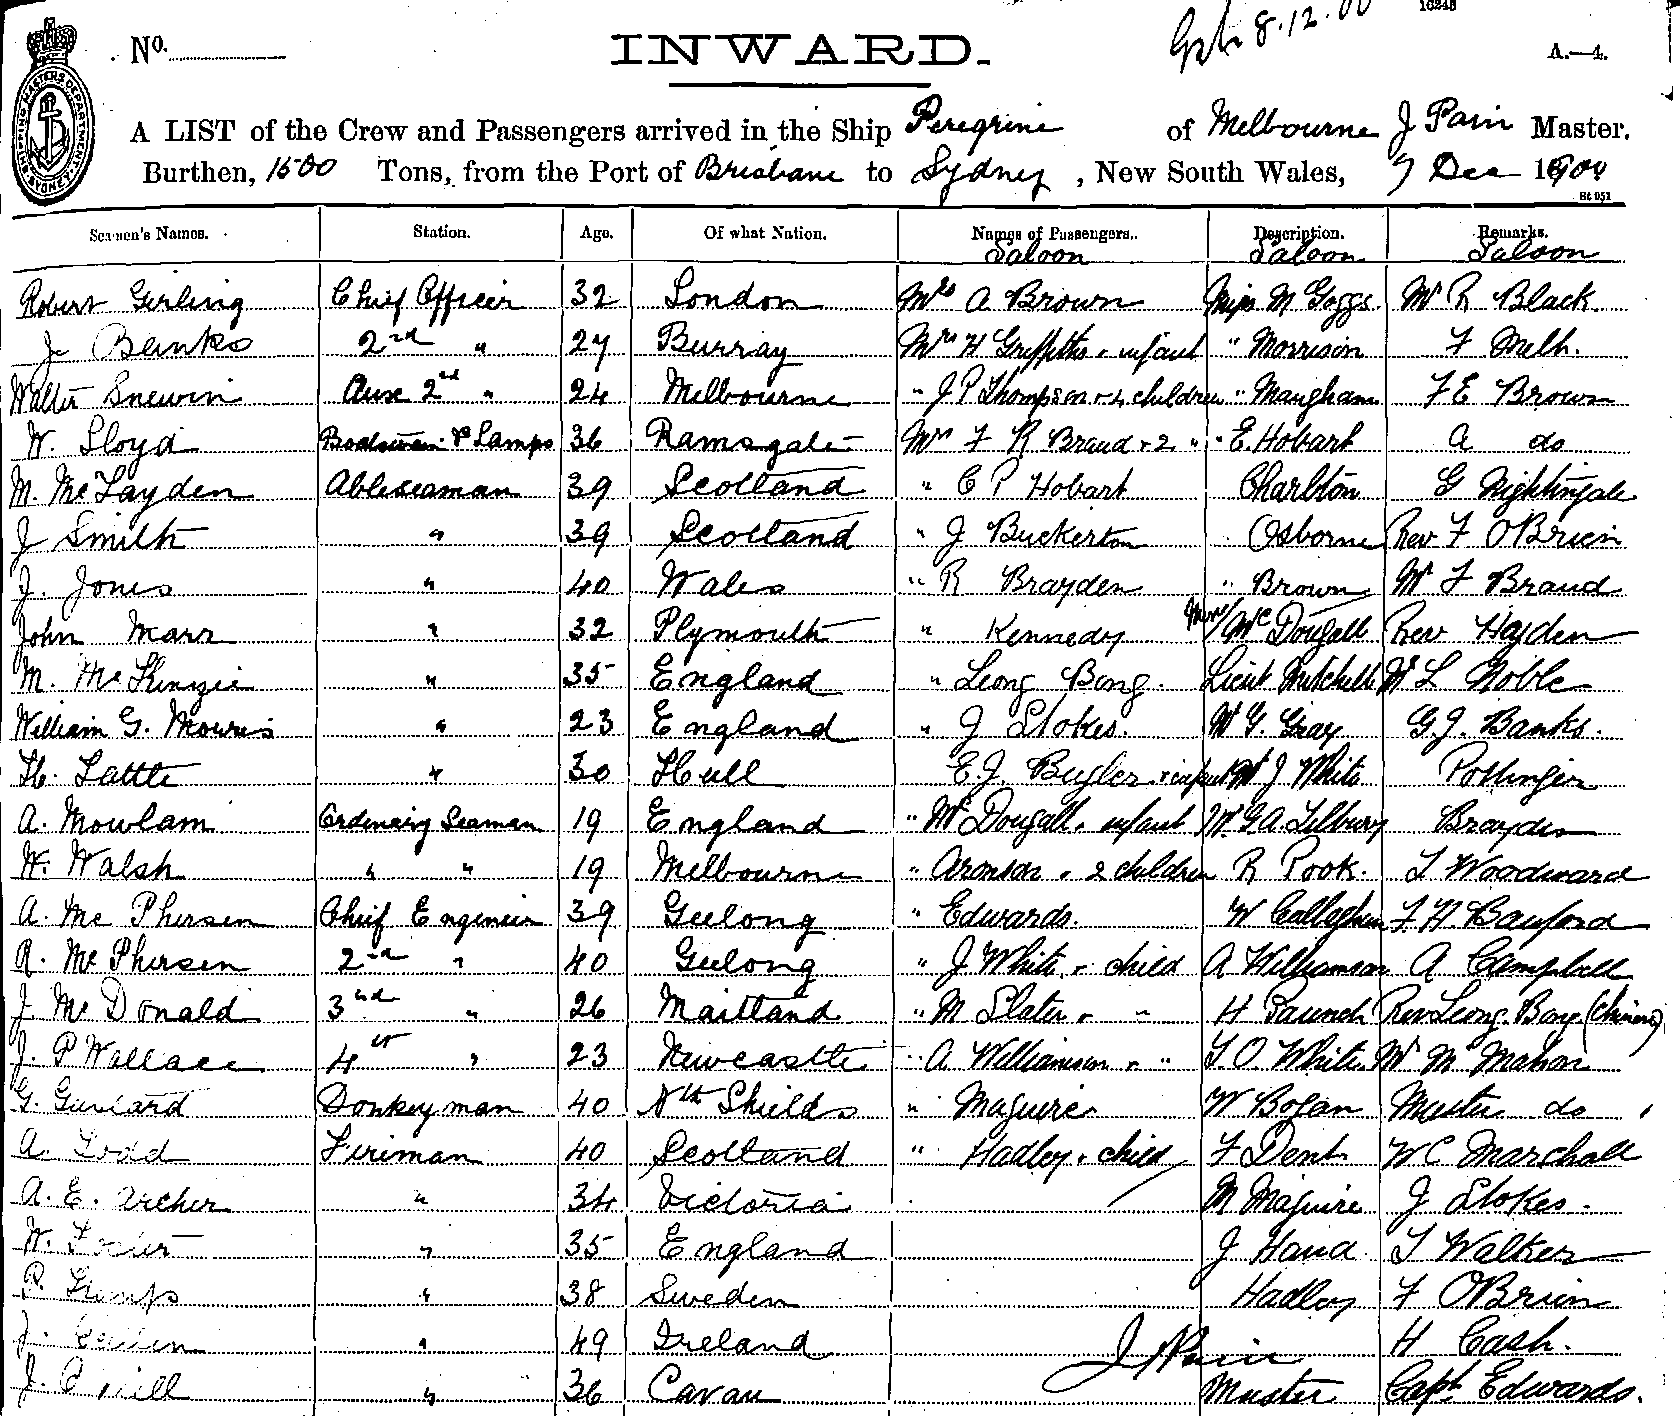 8.12.00
10248
No.
INWARD.
A.—4.
A LIST of the Crew and Passengers arrived in the Ship Peregrine of Melbourne J Pain Master.
Burthen, 1500 Tons, from the Port of Brisbane to Sydney, New South Wales, 7 Dec 1900
St 051
Seamen's Names. Station. Age. Of what Nation. Names of Passengers. Description. Remarks.
Saloon Saloon Saloon
Robert Girling Chief Officer 32 London Mrs A Brown Miss M Goggs Mr R Black
J Banks 2nd " 27 Burray Mrs H Griffiths & infant " Morrison F Melh.
Walter Snewin Aux 2nd " 24 Melbourne " J P Thompson & 4 children " Maugham F E Brown
W. Lloyd Boatswain & Lamps 36 Ramsgate Mrs F R Braud & 2 " " E. Hobart A do
M. McFayden Ableseaman 39 Scotland " C P Hobart Charlton G Nightingale
J Smith " 39 Scotland " J Buckerton Osborne Rev F OBrien
J. Jones " 40 Wales " R Brayden " Brown Mr F Braud
John Marr " 32 Plymouth " Kennedy McDougall Rev Hayden
M. McKinzie " 35 England " Leong Bong. Lieut Mitchell Mr L Noble
William G. Mowris " 23 England " J Stokes. Mr G. Gray G.J. Banks.
H. Lattle " 30 Hull E.J. Bugler & infant Mr J White Pottinger
A. Mowlam Ordinary Seaman 19 England " McDougall & infant Mr. G A Tilbury Brayden
W. Walsh " " 19 Melbourne " Aronson & 2 children R Pook. T Woodward
A. McPhersen Chief Engineer 39 Geelong " Edwards. W Callaghan F. H. Bauford
R. McPhersen 2nd " 40 Geelong " J White & child A Williamson A Campbell
J McDonald 3rd " 26 Maitland " M Slater & " H Paunch Rev Leong Bong (Chinese)
J. P Wallace 4th " 23 Newcastle " A Williamson & " T. O. White Mr McMahon
G. Donkeyman 40 Nth Shields " Maguire W Bogan Master do
A. Todd Fireman 40 Scotland " Hadley & child F Dent W C Marshall
A. E. Archer " 34 Victoria M Maguire J Stokes.
W. " 35 England J Hand T Walker
P. " 38 Sweden Hadley F OBrien
J. " 49 Ireland J Pain H Cash.
J. " 36 Cavan Master Capt Edwards.